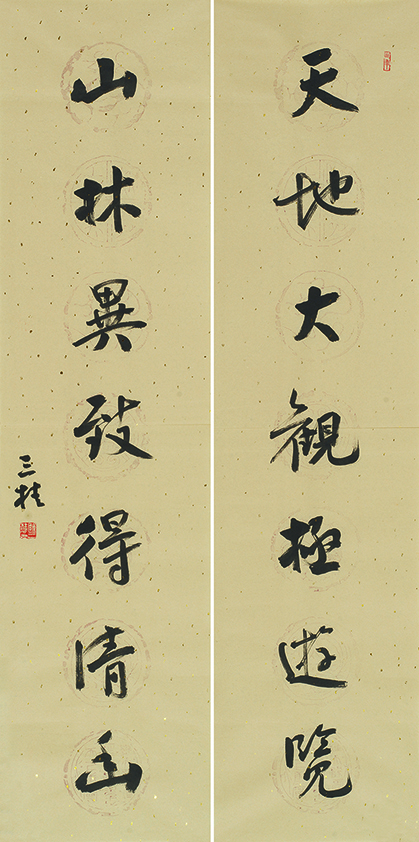 天地大觀極遊覽
山林異致得清幽
三桂